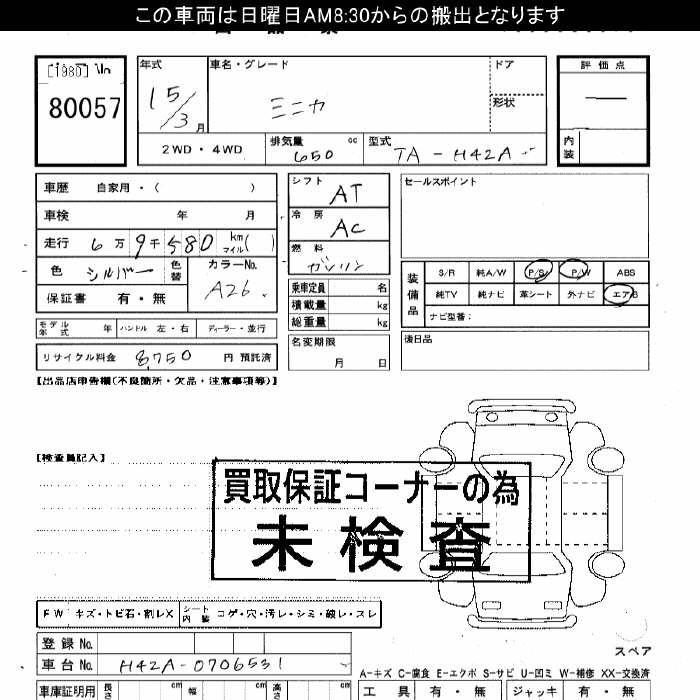 この車両は日曜日AM8:30からの搬出となります
[1980] \ln
80057
年式
15/3月
車名・グレード
ミニカ
ドア
形状
評価点
内装
2WD・4WD
排気量
650 cc
型式
TA-H42A
車歴 自家用・( )
車検 年 月
走行 6万9千580 km マイル( )
色 シルバー 色替
カラーNo.
A26
保証書 有・無
シフト
AT
冷房
AC
燃料
ガソリン
乗車定員 名
積載量 kg
総重量 kg
名変期限
月 日
セールスポイント
装備品
S/R 純A/W P/S P/W ABS
純TV 純ナビ 革シート 外ナビ エアB
ナビ型番:
後日品
モデル年式 年 ハンドル 左・右 ディーラー・並行
リサイクル料金 8,750 円 預託済
【出品店申告欄(不良箇所・欠品・注意事項等)】
【検査員記入】
買取保証コーナーの為
未検査
FW キズ・トビ石・割レX シート内装 コゲ・穴・汚レ・シミ・破レ・スレ
登録No.
車台No. H42A-0706531
スペア
A-キズ C-腐食 E-エクボ S-サビ U-凹ミ W-補修 XX-交換済
車庫証明用 長さ cm 幅 cm 高さ cm
工具 有・無 ジャッキ 有・無